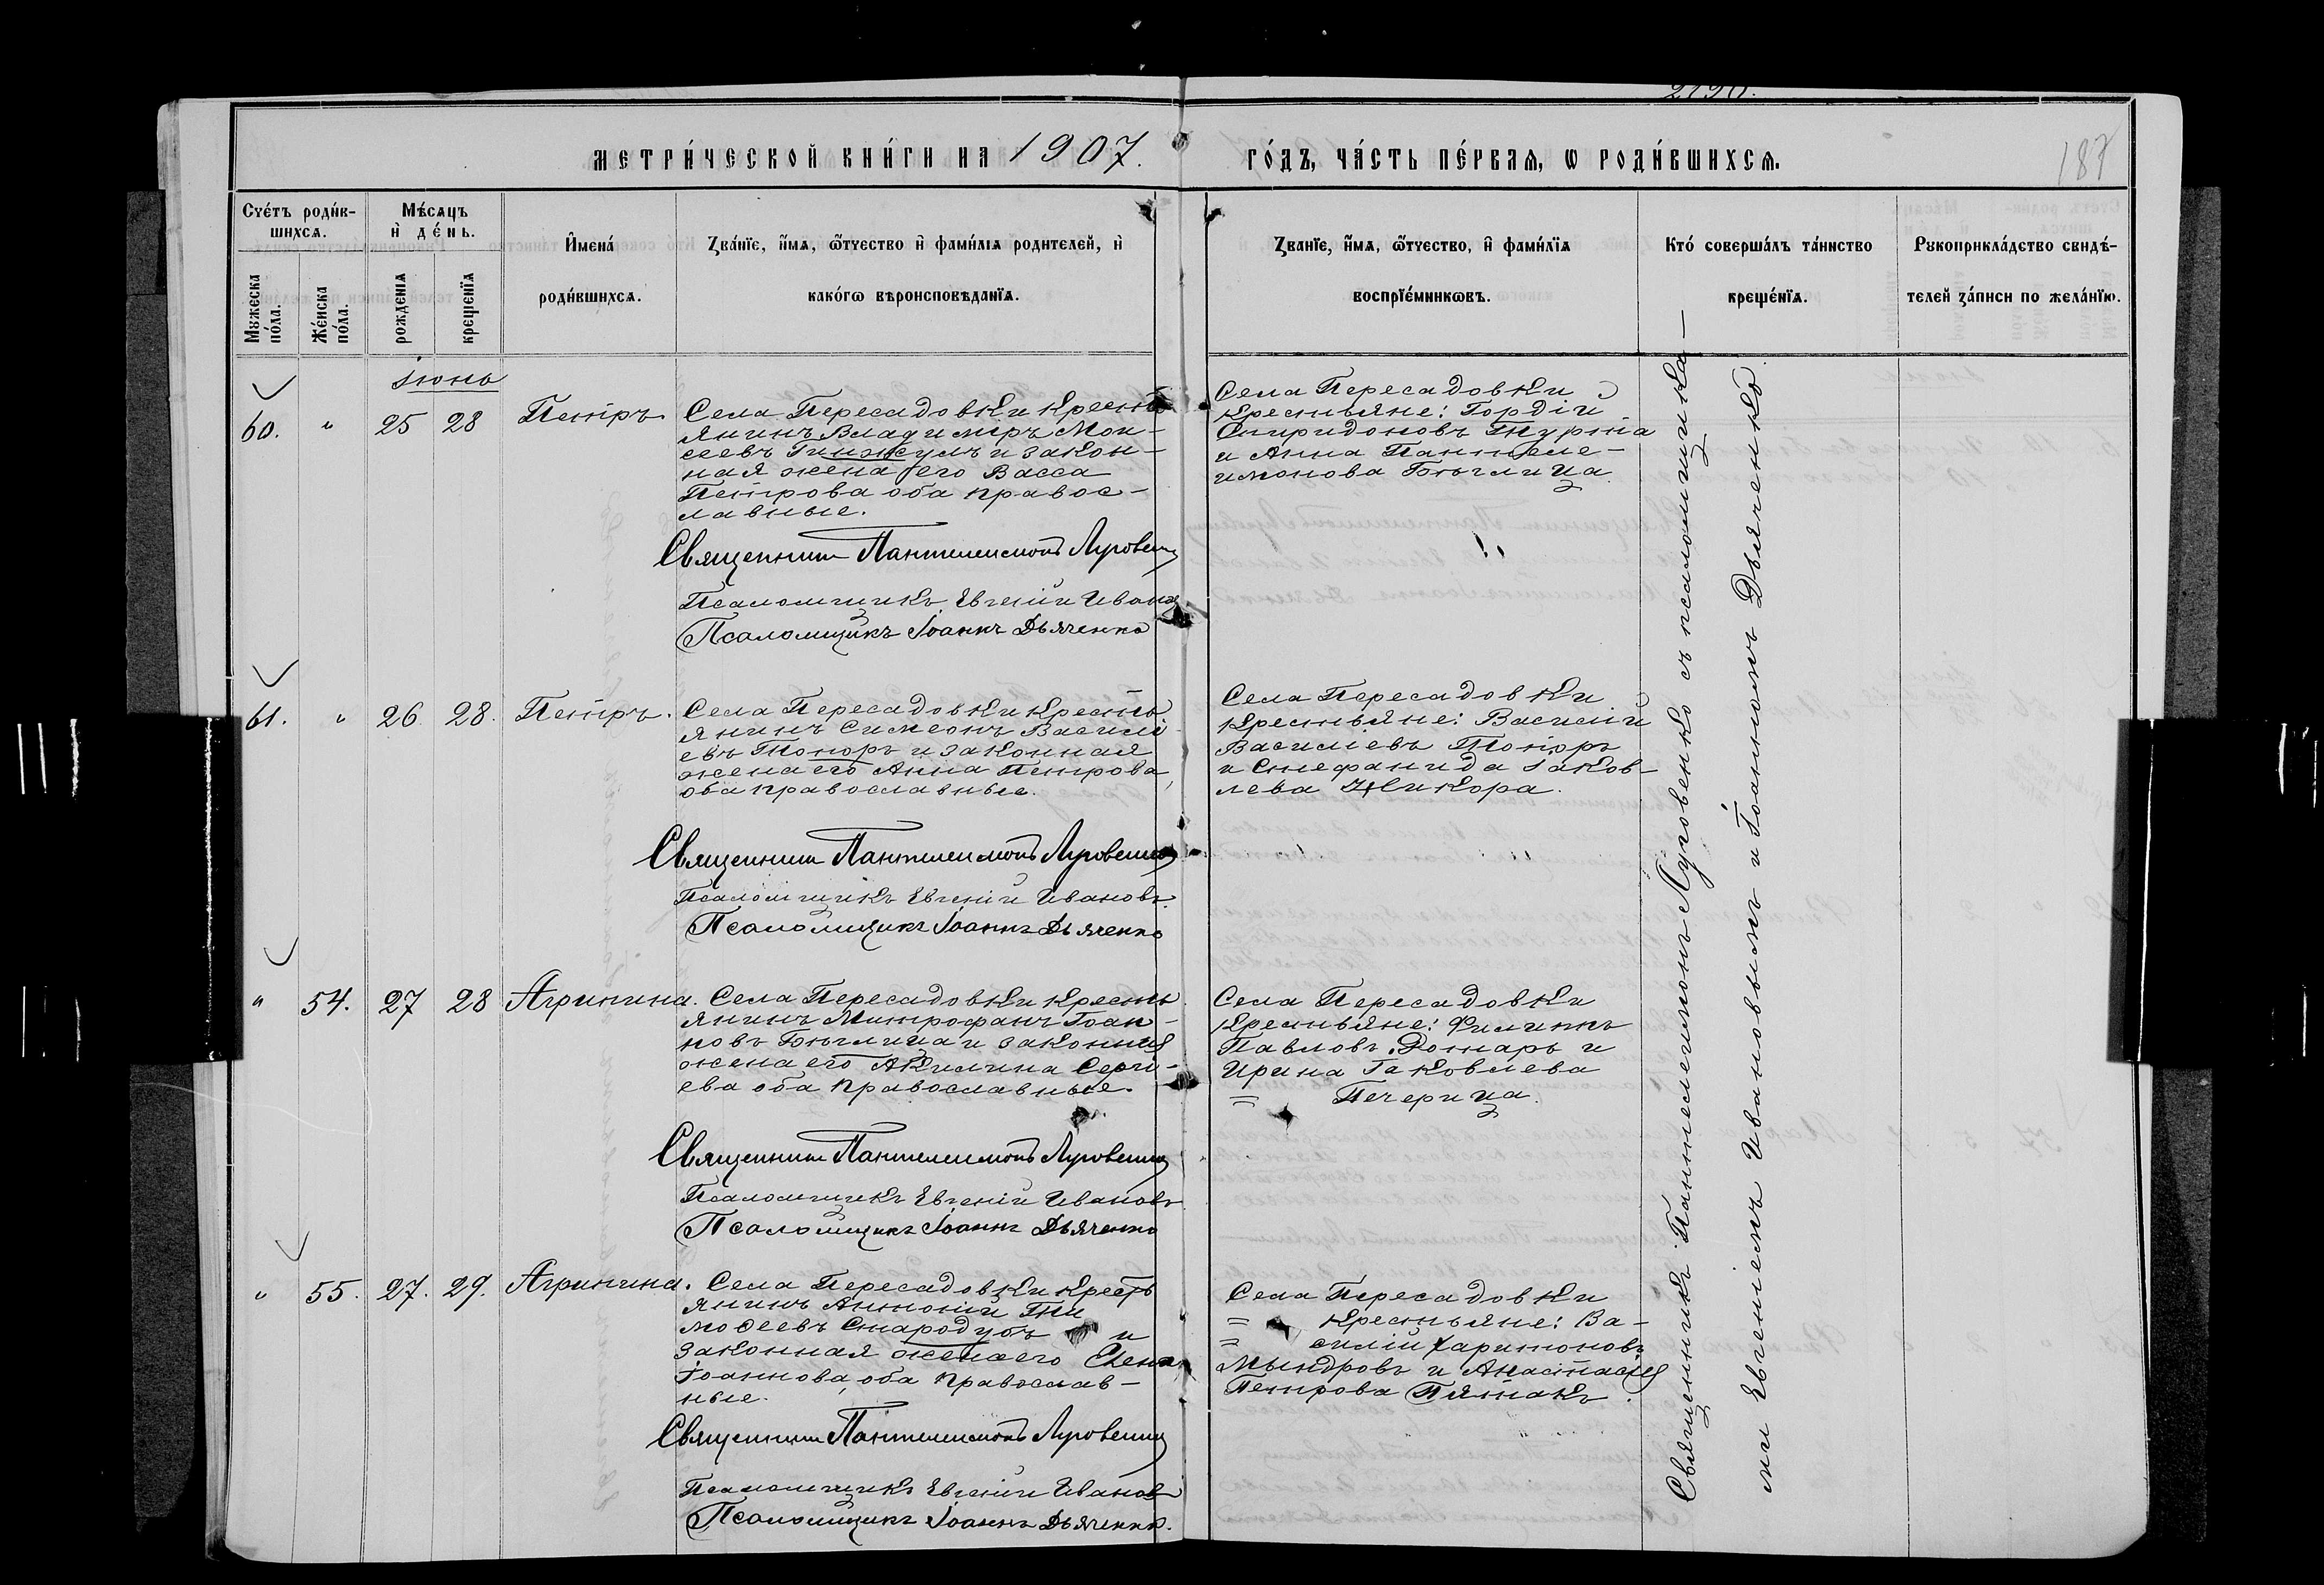 2190.
МЕТРИ́ЧЕСКОЙ КНИ́ГИ НА 1907.
ГО́ДЪ, ЧА́СТЬ ПЕ́РВАЯ, Ѡ РОДИ́ВШИХСЯ.
187
Сче́тъ роди́в-
шихся.
Мꙋжеска
по́ла.
Же́нска
по́ла.
Мѣ́сяцъ
и҆ де́нь.
рожденїя
крещенїя
И҆мена́
роди́вшихся.
Ꙁва́нїе, и҆́мя, ѻ҆́тчество и҆ фами́лїя родителей, и҆
како́гѡ вѣроисповѣданїя.
Ꙁванїе, и҆́мя, ѻ҆́тчество, и҆ фами́лїя
воспрїе́мникѡвъ.
Кто́ соверша́лъ та́инство
креще́нїя.
Рꙋкоприкла́дство свидѣ́-
телей за́писи по жела́нїю.
Іюнь
60. " 25 28 Петръ
Села Пересадовки кресть
янинъ Владиміръ Мои-
сеевъ Гинжулъ и закон-
ная жена его Васса
Петрова оба правос-
лавные.
Священникъ Пантелеимонъ Луговенко
Псаломщикъ Евгеній Иванов
Псаломщикъ Іоаннъ Дьяченко
Села Пересадовки
крестьяне: Гордій
Спиридоновъ Турта
и Анна Пантеле-
имонова Бѣглица.
61. " 26 28. Петръ.
Села Пересадовки кресть
янинъ Симеонъ Василі
евъ Топоръ и законная
жена его Анна Петрова,
оба православные.
Священникъ Пантелеимонъ Луговенко
Псаломщикъ Евгеній Ивановъ.
Псаломщикъ Іоаннъ Дьяченко
Села Пересадовки
крестьяне: Василій
Василіевъ Топоръ
и Стефанида Іаков-
лева
" 54. 27 28 Агрипина.
Села Пересадовки кресть
янинъ Митрофанъ Іоан-
новъ Бѣглица и законная
жена его Акилина Сергі-
ева оба православные.
Священникъ Пантелеимонъ Луговенко
Псаломщикъ Евгеній Ивановъ
Псаломщикъ Іоаннъ Дьяченко
Села Пересадовки
крестьяне: Филиппъ
Павловъ и
Ирина Іаковлева
= Печерица.
" 55. 27. 29. Агрипина.
Села Пересадовки кресть
янинъ Антоній Ти
моѳеевъ Стародубъ и
законная жена его Елена
Іоаннова, оба православ-
ные.
Священникъ Пантелеимонъ Луговенко
Псаломщикъ Евгеній Ивановъ
Псаломщикъ Іоаннъ Дьяченко.
Села Пересадовки
= крестьяне: Ва-
= силій Харитоновъ
Мындровъ и Анастасія
Петрова Пятакъ.
Священникъ Пантелеимонъ Луговенко съ псаломщика-
ми Евгеніемъ Ивановымъ и Іоанномъ Дьяченко.